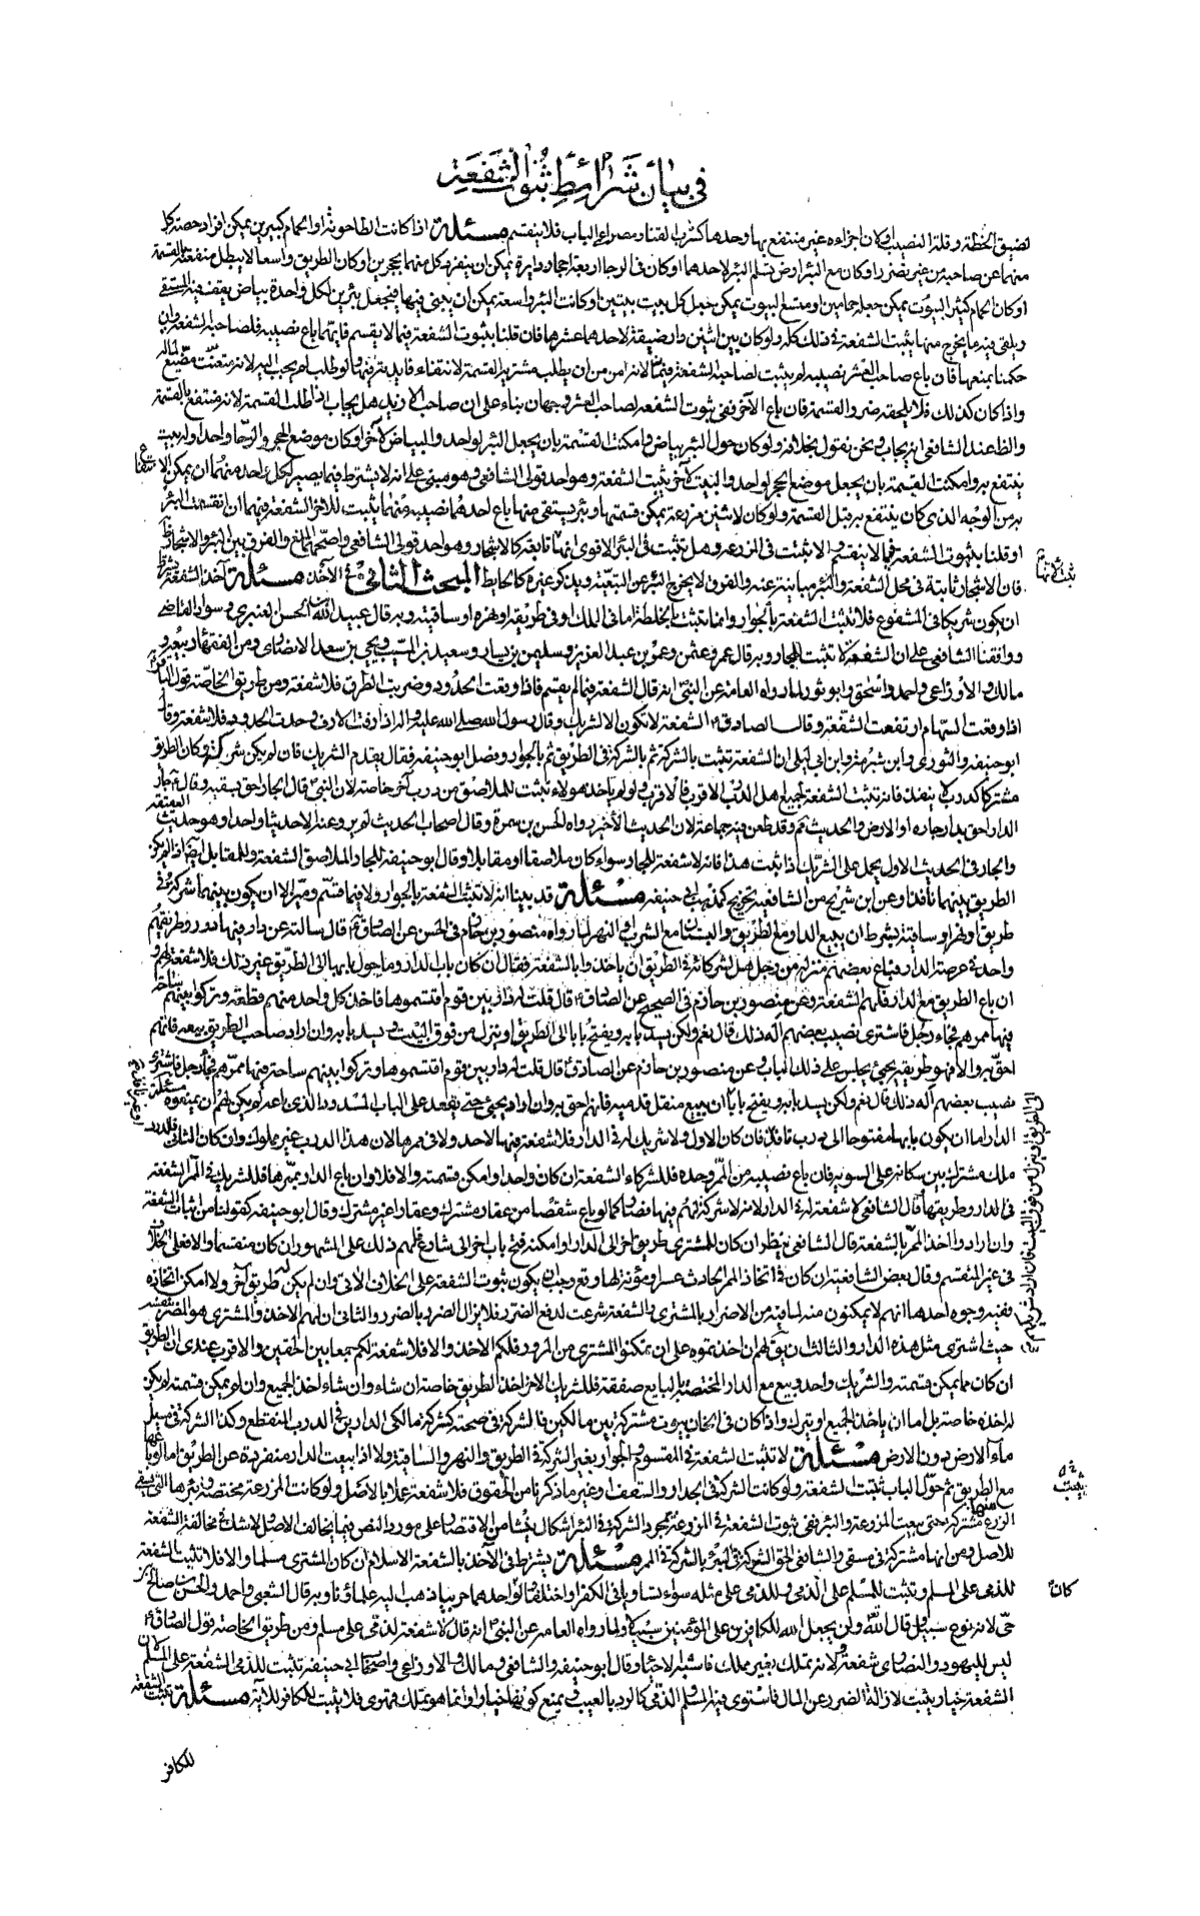 في بيان شرائط ثبوت الشفعة
لضيق الخطة وقلة النصيب او كان اجزاءه غير منتفع بها وحدها كشرب القناة ومصراعي الباب فلا ينقسم مسئلة اذا كانت الطاحونة او الحمام كبيرين يمكن افراد حصة كل
منهما عن صاحبه من غير تضرر او كان مع البئر ارض تسلم البئر لاحدهما او كان في الرحا اربعة احجار دايرة يمكن ان ينفرد كل منهما بحجرين او كان الطريق واسعا لا يبطل منفعته بالقسمة
او كان الحمام كثير البيوت يمكن جعله حمامين او متسع البيوت يمكن جعل كل بيت بيتين او كانت البئر واسعة يمكن ان يبنى فيها فيجعل بئرين لكل واحدة بياض يقف فيه المستقي
ويلقى فيه ما يخرج منها يثبت الشفعة في ذلك كله ولو كان بين اثنين دار ضيقة لاحدهما عشرها فان قلنا بثبوت الشفعة فيما لا يقسم فايهما باع نصيبه فلصاحبه الشفعة وان
حكمنا بمنعها فان باع صاحب العشر نصيبه لم يثبت لصاحبه الشفعة فيه لانه امن من ان يطلب مشتريه القسمة لانتفاء فايدته فيها ولو طلب لم يجب اليه لانه متعنت مضيع لماله
واذا كان كذلك فلا يلحقه ضرر القسمة فان باع الآخر ففي ثبوت الشفعة لصاحب العشر وجهان بناء على ان صاحب الازيد هل يجاب اذا طلب القسمة لانه منتفع بالقسمة
والظ عند الشافعي انه يجاب ونحن نقول بخلافه ولو كان حول البئر بياض وامكنت القسمة بان يجعل البئر لواحد والبياض لآخر او كان موضع الحجر في الرحا واحدا وله بيت
ينتفع به وامكنت القسمة بان يجعل موضع الحجر لواحد والبيت لآخر ثبت الشفعة وهو احد قولي الشافعي وهو مبني على انه لا يشترط فيما يصير لكل واحد منهما ان يمكن الانتفاع
به من الوجه الذي كان ينتفع به قبل القسمة ولو كان لاثنين مزرعة يمكن قسمتها وبئر يستقى منها باع احدهما نصيبه منهما يثبت للآخر الشفعة فيهما ان انقسمت البئر
او قلنا بثبوت الشفعة فيما لا ينقسم والا ثبتت في المزرعة وهل تثبت في البئر الاقوى انها تابعة كالاشجار وهو احد قولي الشافعي واصحهما المنع والفرق بين البئر والاشجار ظ
فان الاشجار ثابتة في محل الشفعة والبئر مباينة عنه والفرق لا يخرج البئر عن التبعية ويذكر غيره كالحايط المبحث الثاني في الآخذ مسئلة آخذ الشفعة يشترط
ان يكون شريكا في المشفوع فلا تثبت الشفعة بالجوار وانما تثبت بالخلطة اما في الملك او في طريقه او نهره او ساقيته وبه قال عبيد الله بن الحسن العنبري وسوار القاضي
ووافقنا الشافعي على ان الشفعة لا تثبت للجار وبه قال عمر وعثمن وعمر بن عبد العزيز وسليمن بن يسار وسعيد بن المسيب ويحيى بن سعيد الانصاري ومن الفقهاء ربيعة و
مالك والاوزاعي واحمد واسحق وابو ثور لما رواه العامة عن النبي انه قال الشفعة فيما لم يقسم فاذا وقعت الحدود وضربت الطرق فلا شفعة ومن طريق الخاصة قول الباقر
اذا وقعت السهام ارتفعت الشفعة وقال الصادق الشفعة لا تكون الا لشريك وقال رسول الله صلى الله عليه واله اذا ارفت الارف وحدت الحدود فلا شفعة وقال
ابو حنيفة والثوري وابن شبرمة وابن ابي ليلى ان الشفعة تثبت بالشركة ثم بالشركة في الطريق ثم بالجوار وفصل ابو حنيفة فقال يقدم الشريك فان لم يكن شريك وكان الطريق
مشتركا كدرب لا ينفذ فانه تثبت الشفعة لجميع اهل الدرب الاقرب فالاقرب فان لم ياخذ هؤلاء تثبت للملاصق من درب آخر خاصة لان النبي قال الجار احق بصقبه وقال جار
الدار احق بدار جاره او الارض والحديث ثم وقد طعن فيه جماعة لان الحديث الاخير رواه الحسن بن سمرة وقال اصحاب الحديث لم يرو عنه الا حديثا واحدا وهو حديث العقيقة
والجار في الحديث الاول يحمل على الشريك اذا ثبت هذا فانه لا شفعة للجار سواء كان ملاصقا او مقابلا وقال ابو حنيفة للجار الملاصق الشفعة وللمقابل ايضا اذا لم يكن
الطريق بينهما نافذا وعن ابن شريح من الشافعية تخريج كمذهب ابي حنيفة مسئلة قد بينا انه لا تثبت الشفعة بالجوار ولا فيما قسم وميز الا ان يكون بينهما شركة في
طريق او نهر او ساقية بشرط ان يبيع الدار مع الطريق والبستان مع الشرب والنهر لما رواه منصور بن حازم في الحسن عن الصادق قال سالته عن دار فيها دور وطريقهم
واحد في عرصة الدار فباع بعضهم منزله من رجل هل لشركائه في الطريق ان ياخذوا بالشفعة فقال ان كان باب الدار وما حول بابها الى الطريق غير ذلك فلا شفعة لهم و
ان باع الطريق مع الدار فلهم الشفعة وعن منصور بن حازم في الصحيح عن الصادق قال قلت له دار بين قوم اقتسموها فاخذ كل واحد منهم قطعة وتركوا بينهم ساحة
فيها ممرهم فجاء رجل فاشترى نصيب بعضهم اله ذلك قال نعم ولكن يسد بابه ويفتح بابا الى الطريق او ينزل من فوق البيت ويسد بابه وان اراد صاحب الطريق بيعه فانهم
احق به والا فهو طريقه يجيئ يجلس على ذلك الباب وعن منصور بن حازم عن الصادق قال قلت له دار بين قوم اقتسموها وتركوا بينهم ساحة فيها ممرهم فجاء رجل فاشترى
نصيب بعضهم اله ذلك قال نعم ولكن يسد بابه ويفتح بابا ان يبيع منقل قدميه فانهم احق به وان اراد يجيئ حتى يقعد على الباب المسدود الذي باعه لم يكن لهم ان يمنعوه مسئلة
الدار اما ان يكون بابها مفتوحا الى درب نافذ فان كان الاول ولا شريك له في الدار فلا شفعة فيها لاحد ولا في ممرها لان هذا الدرب غير مملوك وان كان الثاني فالدرب
ملك مشترك بين سكانه على السوية فان باع نصيبه من الممر وحده فللشركاء الشفعة ان كان واحدا وامكن قسمته والا فلا وان باع الدار بممرها فللشريك في الممر الشفعة
في الدار وطريقها قال الشافعي لا شفعة له في الدار لانه لا شركة لهم فيها فصار كما لو باع شقصا من عقار مشترك وعقارا غير مشترك وقال ابو حنيفة كقولنا من اثبات الشفعة
وان ارادوا اخذ الممر بالشفعة قال الشافعي ينظر ان كان للمشتري طريق آخر الى الدار او امكنه فتح باب آخر الى شارع فلهم ذلك على المشهور ان كان منقسما والا فعلى الخلاف
في غير المنقسم وقال بعض الشافعية ان كان في اتخاذ الممر الحادث عسر او مؤنة لها وقع وجب ان يكون ثبوت الشفعة على الخلاف الآتي وان لم يكن له طريق آخر ولا امكن اتخاذه
ففيه وجوه احدها انهم لا يمكنون منه لما فيه من الاضرار بالمشتري والشفعة شرعت لدفع الضرر فلا يزال الضرر بالضرر والثاني ان لهم الاخذ والمشتري هو المضر بنفسه
حيث اشترى مثل هذه الدار والثالث ان يق لهم ان اخذتموه على ان تمكنوا المشتري من المرور فلكم الاخذ والا فلا شفعة لكم جمعا بين الحقين والاقرب عندي ان الطريق
ان كان مما يمكن قسمته والشريك واحد وبيع مع الدار المختصة بالبايع صفقة فللشريك الآخر اخذ الطريق خاصة ان شاء وان شاء اخذ الجميع وان لم يمكن قسمته لم يكن
له اخذه خاصة بل اما ان ياخذ الجميع او يترك واذا كان في الخان بيوت مشتركة بين مالكين فالشركة في صحنه كشركة مالكي الدارين في الدرب المنقطع وكذا الشركة في مسيل
ماء الارض دون الارض مسئلة لا تثبت الشفعة في المقسوم والجوار بغير الشركة في الطريق والنهر والساقية ولا اذا بيعت الدار منفردة عن الطريق اما لو باعها
مع الطريق ثم حول الباب ثبتت الشفعة ولو كانت الشركة في الجدار والسقف او غير ما ذكرنا من الحقوق فلا شفعة عملا بالاصل ولو كانت المزرعة مختصة وبئرها التي يسقى
الزرع منها مشتركة حتى بيعت المزرعة والبئر ففي ثبوت الشفعة في المزرعة بمجرد الشركة في البئر اشكال ينشأ من الاقتصار على مورد النص فيما يخالف الاصل ولا شك في مخالفة الشفعة
للاصل ومن انها مشتركة في مسقى والشافعي الحق الشركة في البئر بالشركة في الممر مسئلة يشترط في الآخذ بالشفعة الاسلام ان كان المشتري مسلما والا فلا تثبت الشفعة
للذمي على المسلم وتثبت للمسلم على الذمي وللذمي على مثله سواء تساويا في الكفر او اختلفا ولو احدهما حربيا ذهب اليه علماؤنا وبه قال الشعبي واحمد والحسن بن صالح بن
حي لانه نوع سبيل وقال الله تعالى ولن يجعل الله للكافرين على المؤمنين سبيلا ولما رواه العامة عن النبي انه قال لا شفعة لذمي على مسلم ومن طريق الخاصة قول الصادق
ليس لليهود والنصارى شفعة ولانه تملك بغير مملك فاشبه الاحياء وقال ابو حنيفة والشافعي ومالك والاوزاعي واصحاب ابي حنيفة تثبت للذمي الشفعة على المسلم لان
الشفعة خيار يثبت لازالة الضرر عن المال فاستوى فيه المسلم والذمي كالرد بالعيب ويمنع كونها خيارا وانما هو تملك قهري فلا يثبت للكافر للآية مسئلة تثبت الشفعة
للكافر
كان